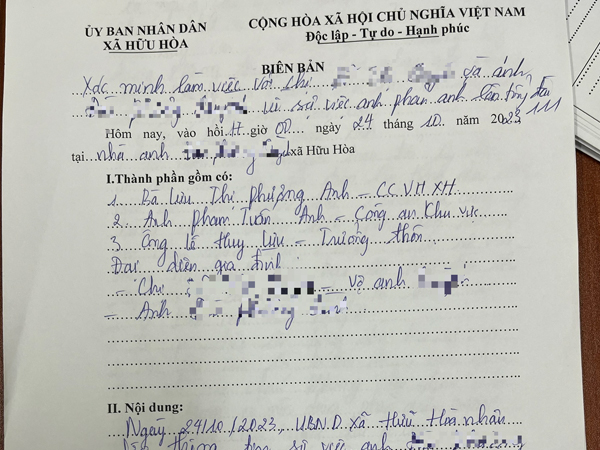 ỦY BAN NHÂN DÂN
XÃ HỮU HÒA
CỘNG HÒA XÃ HỘI CHỦ NGHĨA VIỆT NAM
Độc lập - Tự do - Hạnh phúc
BIÊN BẢN
Xác minh làm việc với chị và anh
về sự việc anh phản ánh lên tổng đài
111
Hôm nay, vào hồi 17 giờ 00 ngày 24 tháng 10 năm 2023
tại nhà anh xã Hữu Hòa
I.Thành phần gồm có:
1. Bà Lưu Thị Phượng Anh - CC VH XH
2. Anh Phạm Tuấn Anh - Công an khu vực
3. Ông Lê Huy Lưu - Trưởng thôn
Đại diện gia đình
- Chị - vợ anh
- Anh
II. Nội dung:
Ngày 24/10/2023, UBND xã Hữu Hòa nhận
thông tin sự việc anh